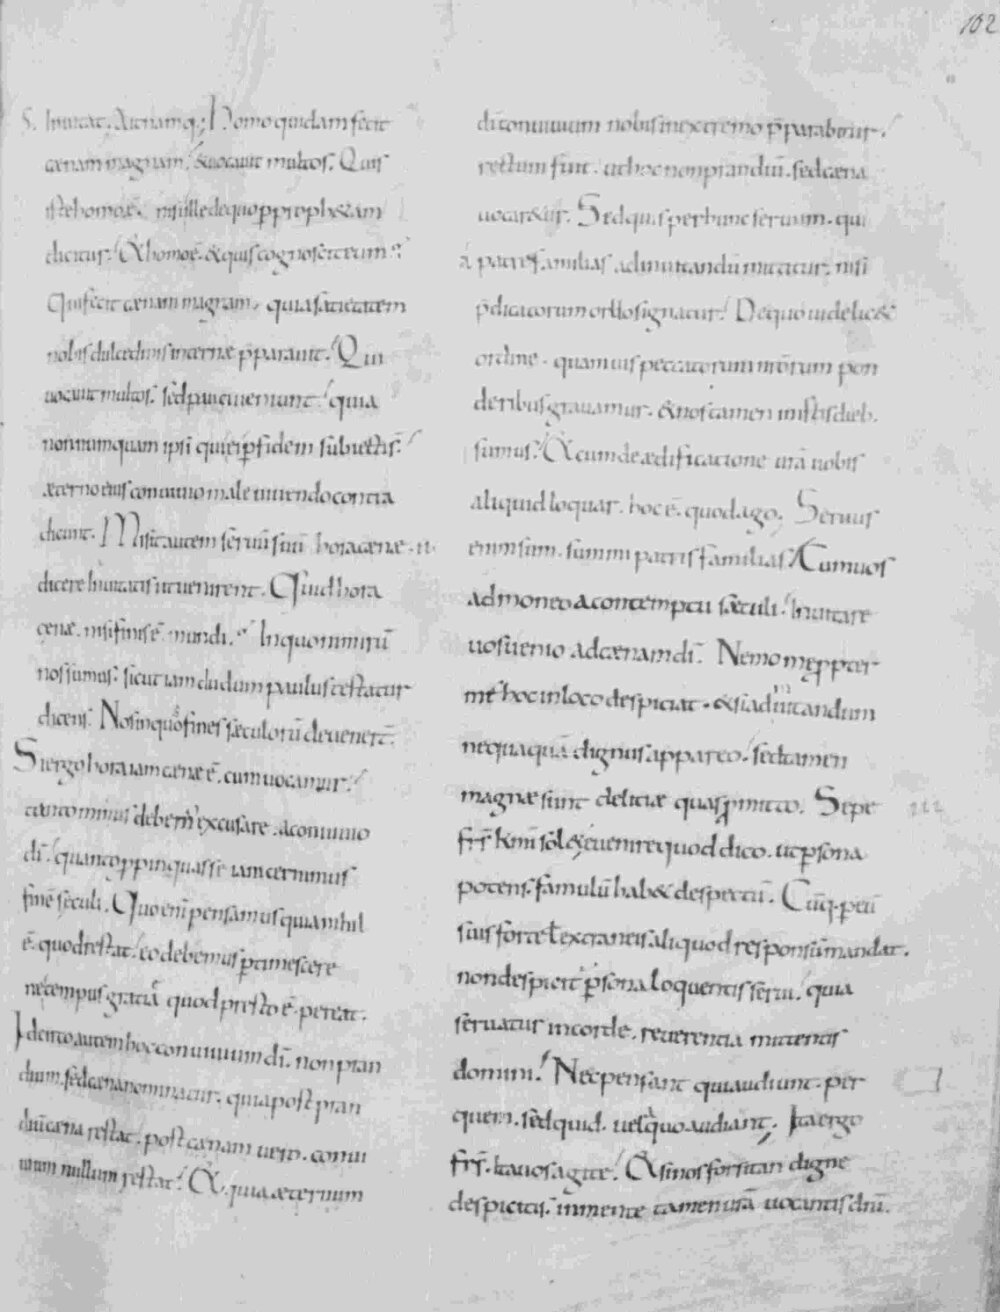 102
inuitat. Ait namq; Homo quidam fecit
cænam magnam. & uocauit multos. Quis
iste homo ẽ. nisi ille de quo p prophetam
dicitur. Et homo ẽ. & quis cognoscit eum?
Qui fecit cænam magnam, quia satietatem
nobis dulcedinis internæ p̄parauit. Qui
uocauit multos. sed pauci ueniunt. quia
nonnumquam ipsi qui ei p fidem subiecti sт̄.
æterno eius conuiuio male uiuendo contra
dicunt. Misit autem seruū suū hora cænæ
dicere inuitatis ut uenirent. Quid hora
cenæ. nisi finis ẽ. mundi? In quo nimirū
nos sumus. sicut iam dudum paulus testatur
dicens. Nos in quos fines sæculorū deuenerт̄.
Si ergo hora iam cenæ ẽ. cum uocamur.
tanto minus debem' excusare. a conuiuio
dī. quanto ppinquasse iam cernimus
finē sæculi. Quo eni pensamus quia nihil
ẽ. quod restat. eo debemus ptimescere
ne tempus gratiæ quod presto ẽ. pereat.
Idcirco autem hoc conuiuium dī. non pran
dium. sed cæna nominatur. quia post pran
diū cæna restat. post cænam uero. conui
uium nullum restat. Et. quia æternum
dī conuiuium nobis in extremo p̄parabitur.
rectum fuit. ut hoc non prandiū. sed cæna
uocar&ur. Sed quis per hunc seruum. qui
a patre familias ad inuitandū mittitur. nisi
p̄dicatorum ordo signatur. De quo uidelic&
ordine. quamuis peccatorum nr̄orum pon
deribus grauamur. & nos tamen in istis dieb.
sumus. Et cum de ædificatione urā uobis
aliquid loquar. hoc ẽ. quod ago. Seruus
enim sum. summi patris familias. Cum uos
admoneo a contemptu sæculi. Inuitare
uos uenio ad cænam dī. Nemo me ppter
me hoc in loco despiciat. & si ad inuitandum
nequaquā dignus appareo. sed tamen
magnæ sunt deliciæ quas pmitto. Sepe
frs̄ kmi sol& euenire quod dico. ut psona
potens. famulū hab& despectū. Cūq. per eū
suis forte ł extraneis aliquod responsū mandat.
non despicit' psona loquentis serui. quia
seruatur in corde. reuerentia mittentis
domini. Nec pensant qui audiunt. per
quem. sed quid. uel a quo audiant. Ita ergo
frs̄. Ita uos agite. Et si nos forsitan digne
despicitis. in mente tamen urā uocantis dnī.